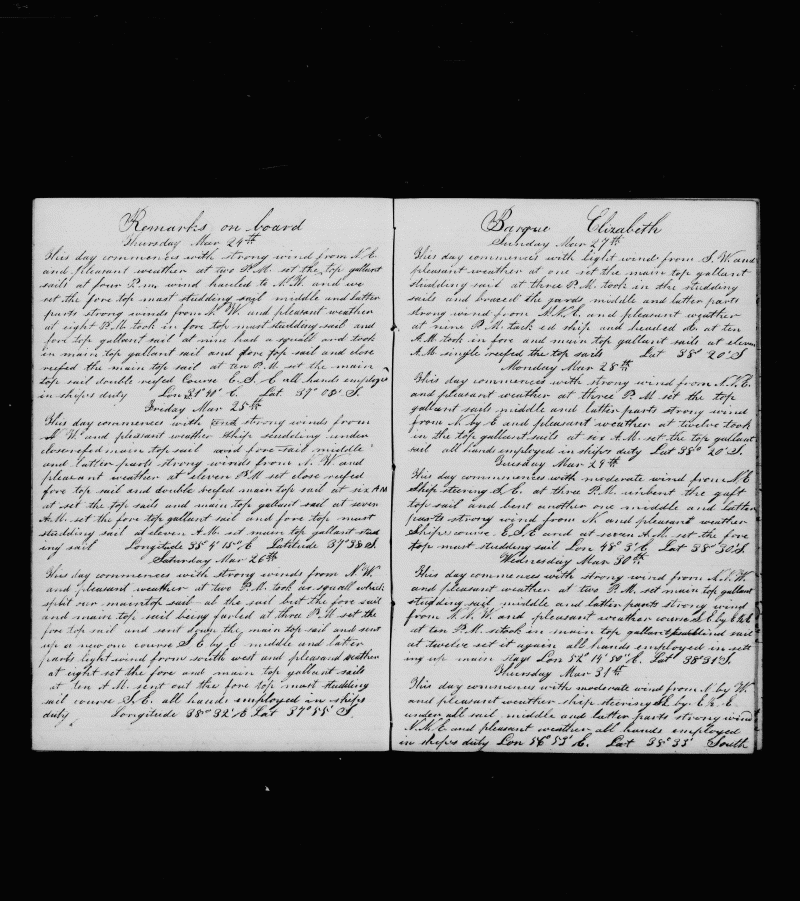 Remarks on board
Thursday Mar 24th
This day commences with strong wind from N.E.
and pleasant weather at two P.M. set the top gallant
sails at four P.m. wind hauled to N.W. and we
set the fore top mast studding sail middle and latter
parts strong winds from N.W. and pleasant weather
at eight P.M. took in fore top mast studding sail and
fore top gallant sail at nine had a squall and took
in main top gallant sail and fore top sail and close
reefed the main top sail at ten P.M. set the main
top sail double reefed Course E.S.E all hands employed
in ship's duty Lon 31° 41' E. Lat 37° 05' S.
Friday Mar 25th
This day commences with and strong winds from
W and pleasant weather ship scudding under
close reefed main top sail and fore sail middle
and latter parts strong winds from N. W. and
pleasant weather at eleven P.M set close reefed
fore top sail and double reefed main top sail at six A M
at set the top sails and main top gallant sail at seven
A.M. set the fore top gallant sail and fore top mast
studding sail at eleven A.M. set main top gallant stud
ing sail Longitude 35° 4' 15" E Latitude 37° 38 S.
Saturday Mar 26th
This day commences with strong winds from N.W.
and pleasant weather at two P.M. took a squall which
split our maintop sail all the sail but the fore sail
and main top sail being furled at three P.M set the
fore top sail and sent down the main top sail and sent
up a new one course S.E by E middle and latter
parts light wind from south west and pleasant weather
at eight set the fore and main top gallant sails
at ten A.M. sent out the fore top mast studding
sail course S.E. all hands employed in ship's
duty Longitude 38° 32' E Lat 37° 55' S.
Barque Elizabeth
Sunday Mar 27th
This day commences with light wind from S.W. and
pleasant weather at one set the main top gallant
studding sail at three P.M. took in the studding
sails and braced the yards middle and latter parts
strong wind from N.E. and pleasant weather
at nine P.M. tack ed ship and headed E. at ten
A.M. took in fore and main top gallant sails at eleven
A.M. single reefed the top sails Lat 38° 20' S
Monday Mar 28th
This day commences with strong wind from N.N.E.
and pleasant weather at three P.M set the top
gallant sails middle and latter parts strong wind
from N by E and pleasant weather at twelve took
in the top gallant sails at six A.M. set the top gallant
sail all hands employed in ships duty Lat 38° 20' S.
Tuesday Mar 29th
This day commences with moderate wind from N.E
Ship steering S.E. at three P.M. unbent the gaff
top sail and bent another one middle and latter
parts strong wind from N. and pleasant weather
Ships course E.S.E and at seven A.M. set the fore
top mast studding sail Lon 48° 3' E Lat 38° 30' S
Wednesday Mar 30th
This day commences with strong wind from N.N.W.
and pleasant weather at two P.M. set main top gallant
studding sail middle and latter parts strong wind
from N.N.W. and pleasant weather course S.E by E½E
at ten P.M. took in main top gallant studding sail
at twelve set it again all hands employed in sett
ing up main stays Lon 52° 14' 50" E. Lat 38° 31' S.
Thursday Mar 31st
This day commences with moderate wind from N by W.
and pleasant weather ship steering S.E. by E½E.
under all sail middle and latter parts strong wind
N.N.E and pleasant weather all hands employed
in ship's duty Lon 56° 53' E. Lat 38° 33' South